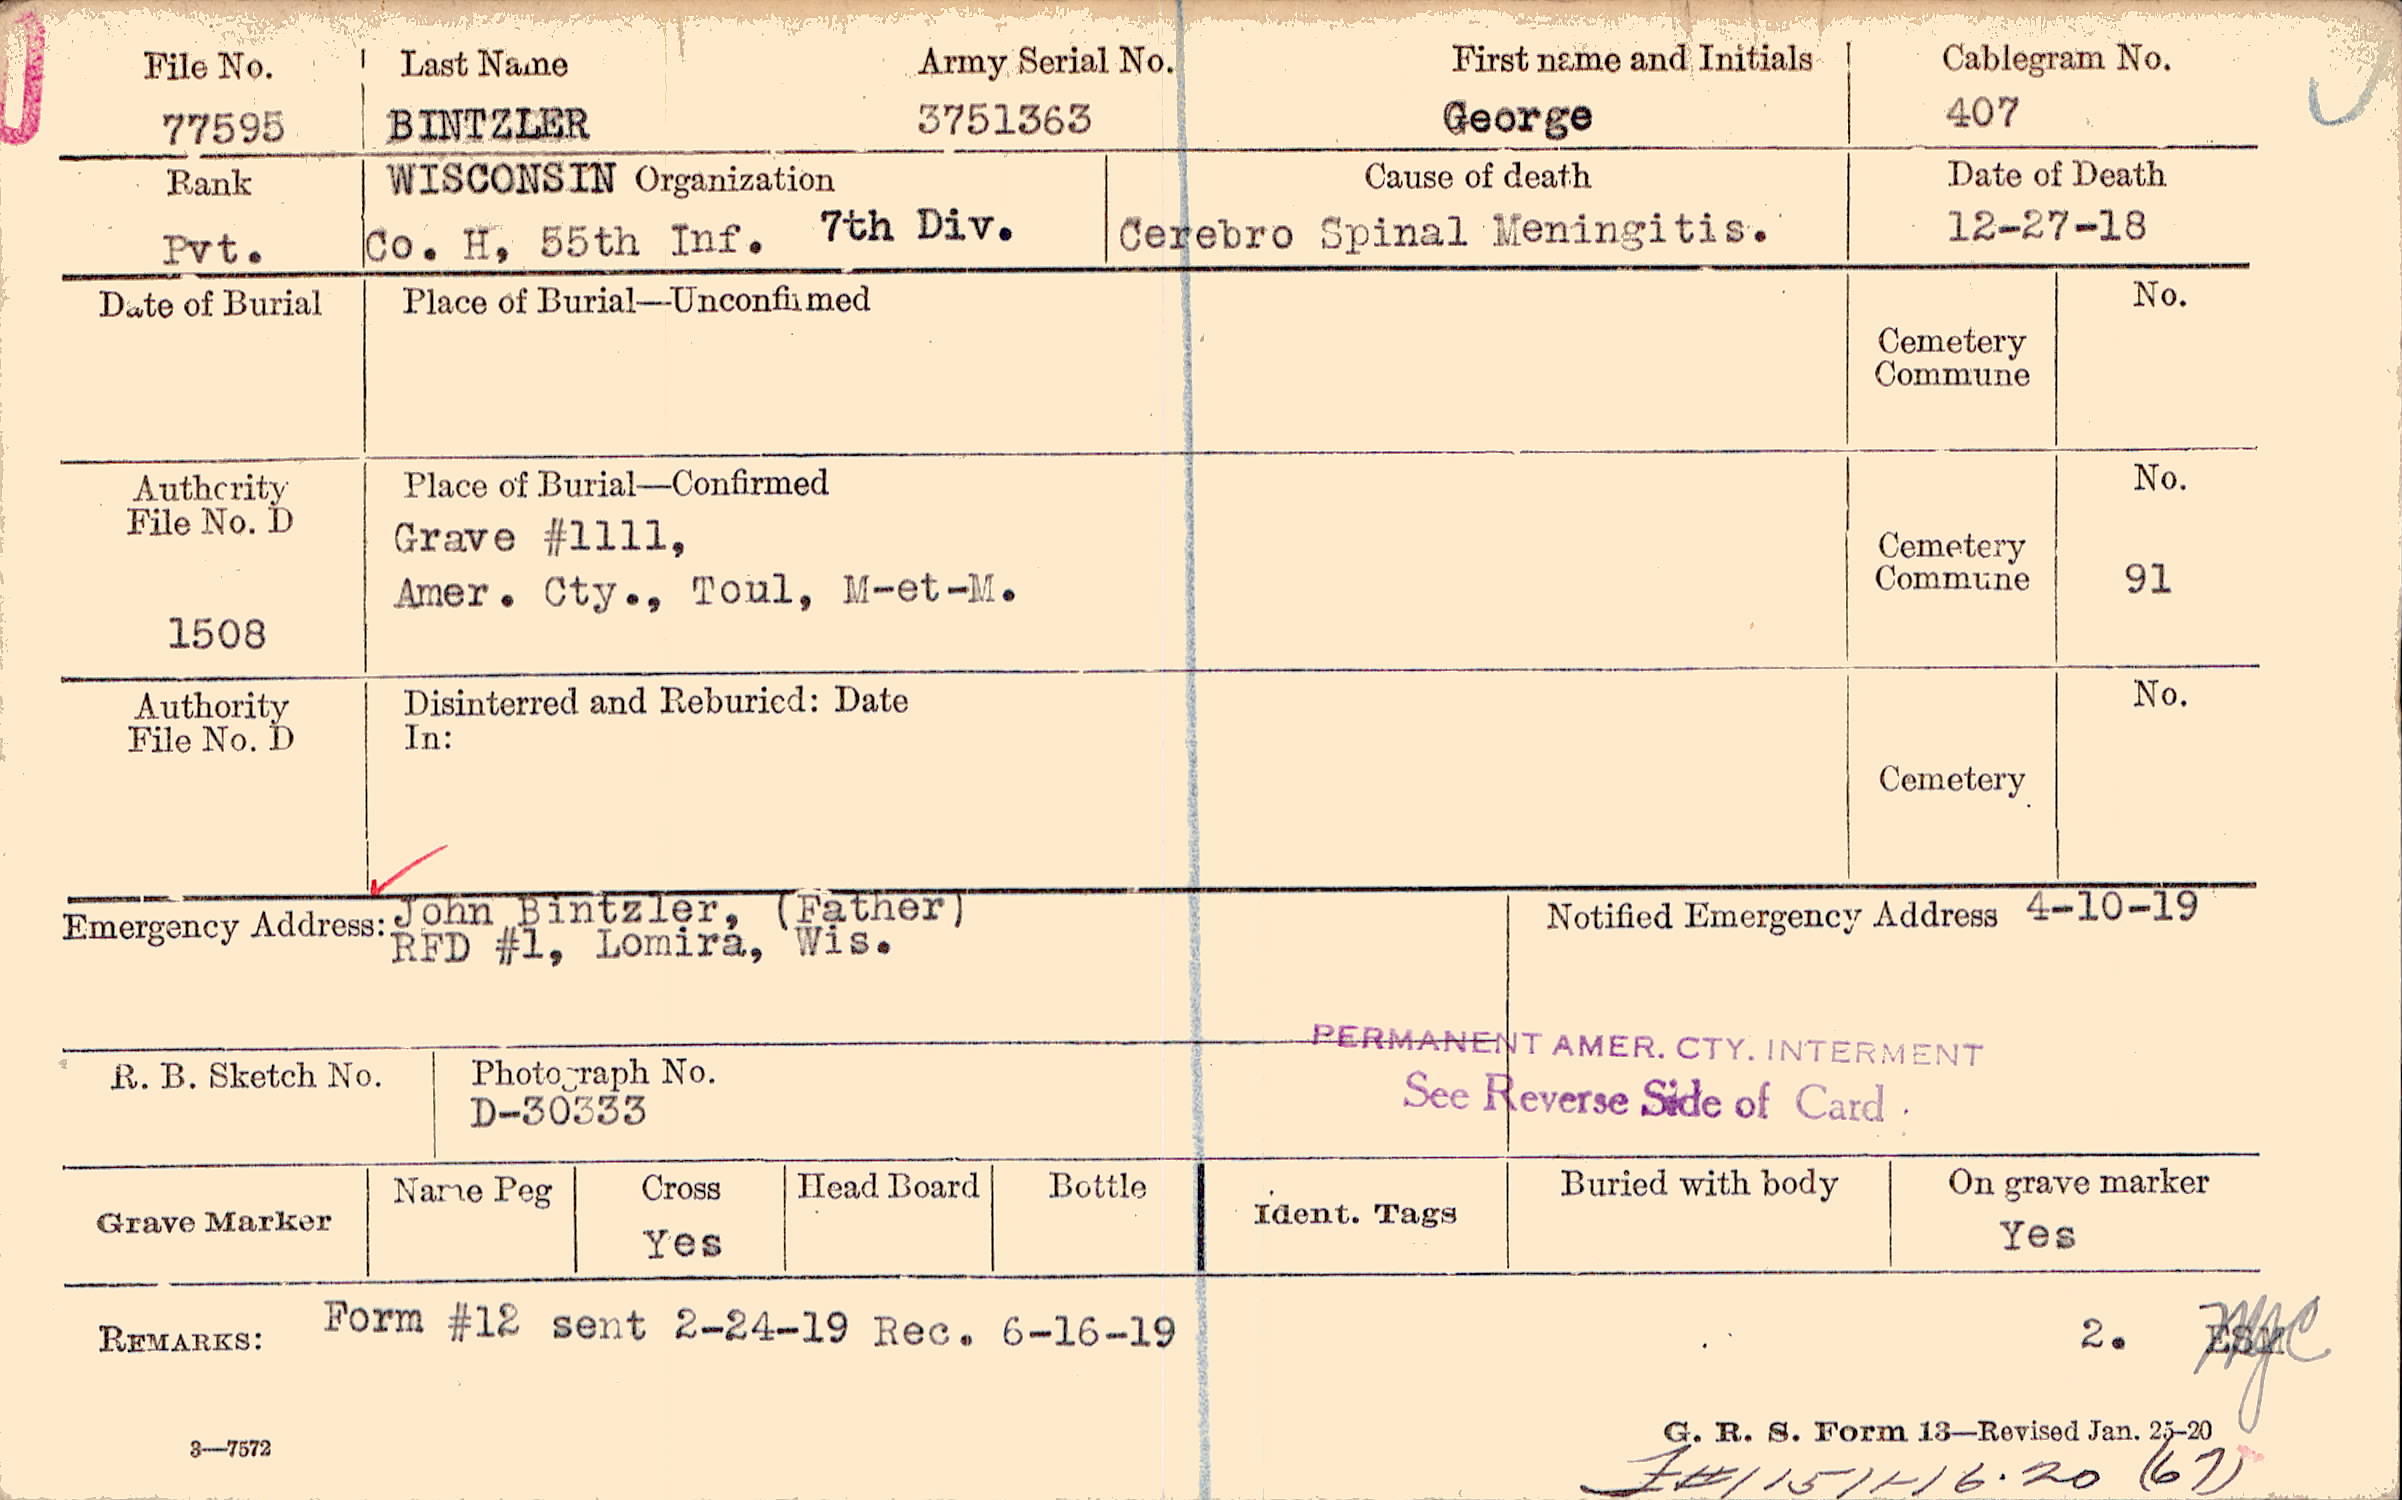 File No. Last Name Army Serial No. First name and Initials Cablegram No.
77595 BINTZLER 3751363 George 407
Rank WISCONSIN Organization Cause of death Date of Death
Pvt. Co. H, 55th Inf. 7th Div. Cerebro Spinal Meningitis. 12-27-18
Date of Burial Place of Burial—Unconfirmed No.
Cemetery
Commune
Authority Place of Burial—Confirmed No.
File No. D
Grave #1111,
Cemetery
Amer. Cty., Toul, M-et-M. Commune 91
1508
Authority Disinterred and Reburied: Date No.
File No. D In:
Cemetery
Emergency Address: John Bintzler, (Father) Notified Emergency Address 4-10-19
RFD #1, Lomira, Wis.
PERMANENT AMER. CTY. INTERMENT
R. B. Sketch No. Photograph No. See Reverse Side of Card
D-30333
Grave Marker Name Peg Cross Head Board Bottle Ident. Tags Buried with body On grave marker
Yes Yes
REMARKS: Form #12 sent 2-24-19 Rec. 6-16-19 2. ESM
3—7572 G. R. S. Form 13—Revised Jan. 25-20
(67)